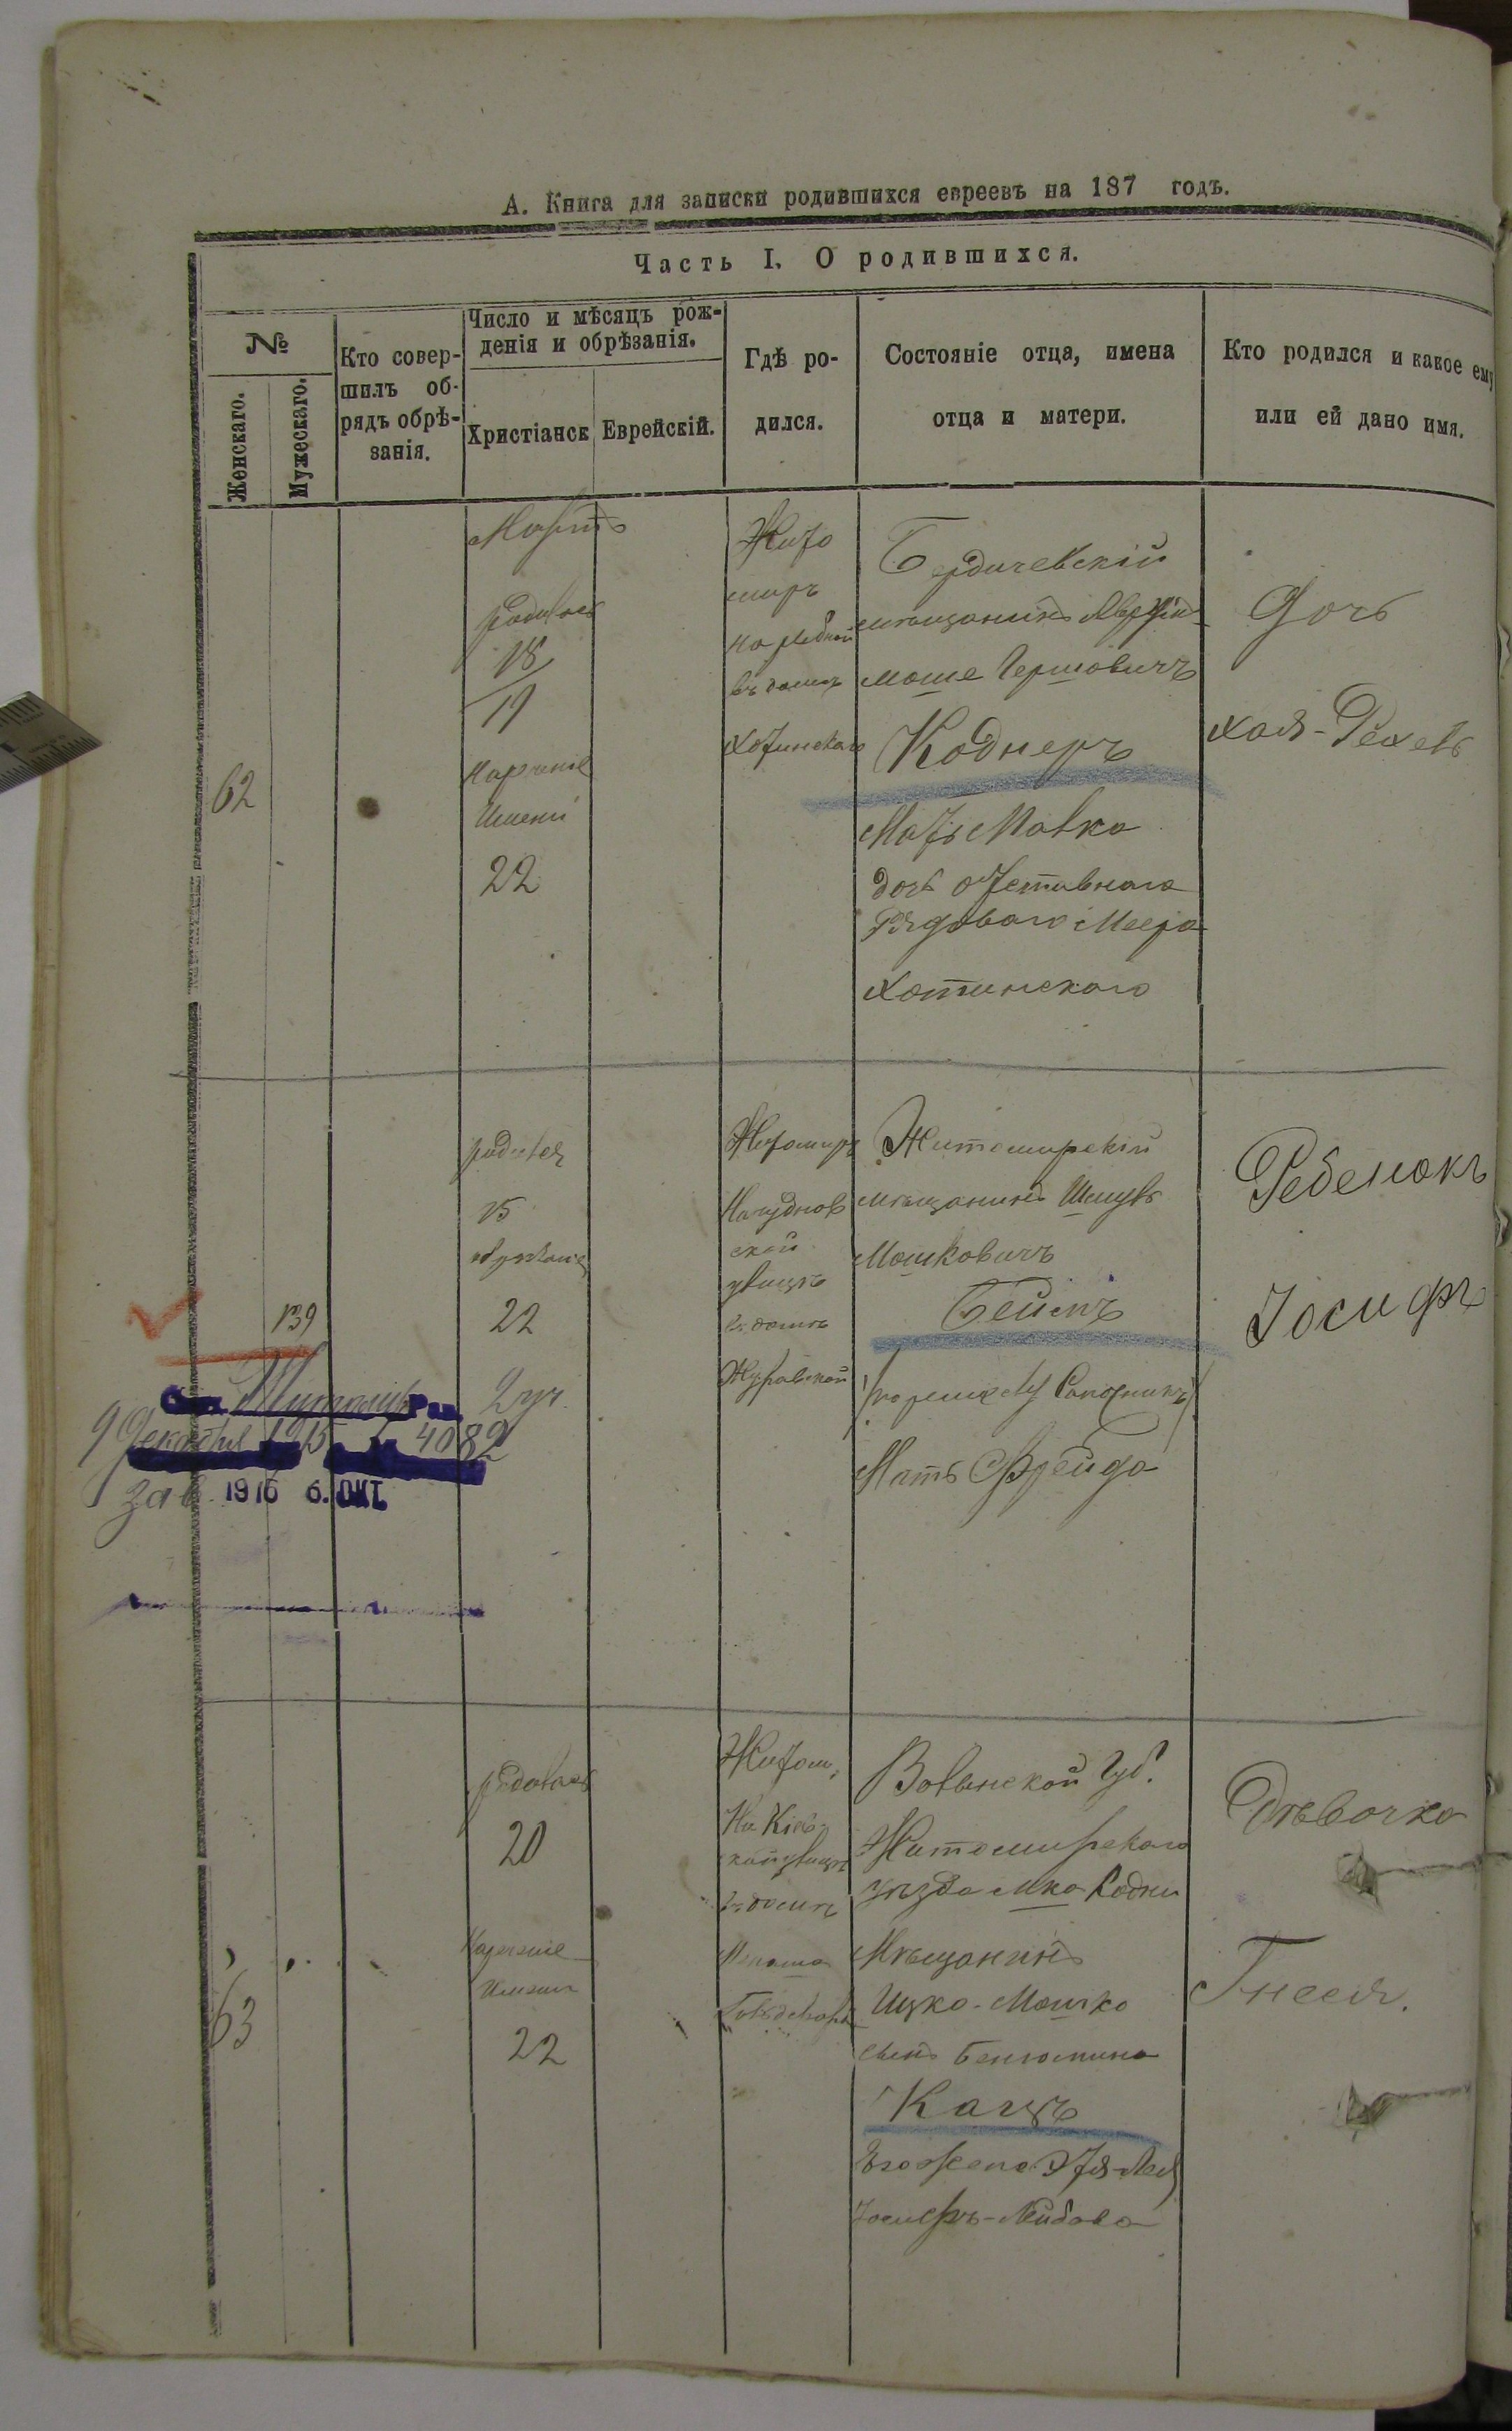 А. Книга для записки родившихся евреевъ на 187 годъ.
Часть I. О родившихся.
№
Женскаго.
Мужескаго.
Кто совер-
шилъ об-
рядъ обрѣ-
занія.
Число и мѣсяцъ рож-
денія и обрѣзанія.
Христіанск
Еврейскій.
Гдѣ ро-
дился.
Состояніе отца, имена
отца и матери.
Кто родился и какое ему
или ей дано имя.
62
Мартъ
родилась
18
19
Нареченіе
Имени
22
Жито
миръ
на
въ домѣ
Хотинскаго
Бердичевскій
мѣщанинъ
Моше Гершовичъ
Коднеръ
Мать Малка
дочь отставнаго
Рядоваго Меера
Хотинскаго
Дочь
Хая-Рехель
139
родился
15
обрѣзанъ
22
Житомиръ
На чуднов
ской
улицѣ
въ домѣ
Журавской
Житомирскій
мѣщанинъ Шмуль
Мошковичъ
Беймъ
Мать Фрейда
Ребенокъ
Іосифъ
9 Декабря 1915 4082
1916 6. ОКТ
63
родилась
20
Нареченіе
Имени
22
Житом.
На Кіев-
кой улицѣ
въ домѣ
Волынской Губ.
Житомирскаго
уѣзда Мка Кодни
Мѣщанинъ
Ицко-Мошко
сынъ Бенюмина
Кацъ
Его жена Этя-Лея
Іосифъ-Лейбова
Дѣвочка
Гнеся.